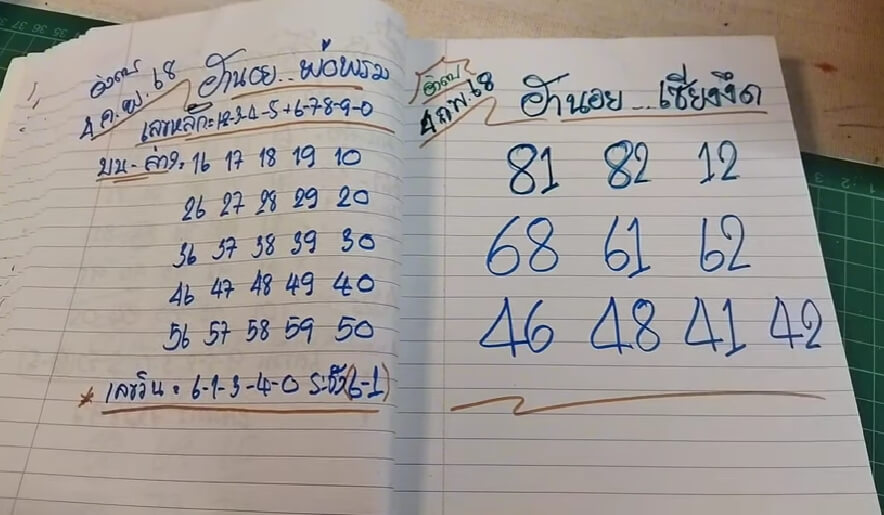 อังคาร
4 ก.พ. 68
ฮานอย..พ่อพรม
เลขหลัก=1-2-3-4-5+6-7-8-9-0
บน-ล่าง: 16 17 18 19 10
26 27 28 29 20
36 37 38 39 30
46 47 48 49 40
56 57 58 59 50
* เลขวิน = 6-1-3-4-0 ระวัง(6-1)
อังคาร
4 ก.พ. 68
ฮานอย...เซี่ยงจึด
81 82 12
68 61 62
46 48 41 42